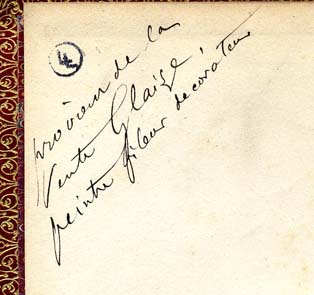 provien de la
Vente Glaizé
peintre fleur decorateur